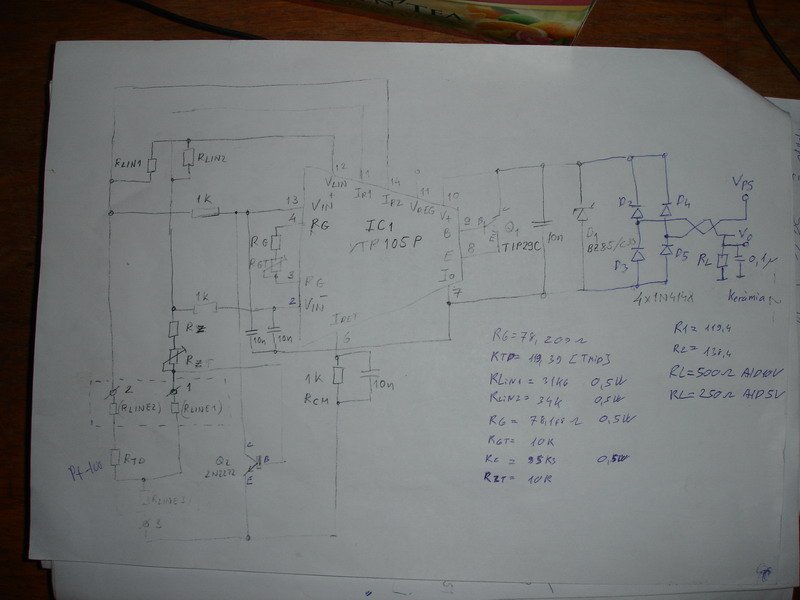 TEA
RLIN1
RLIN2
12
11
14
11
10
VLIN
IR1
IR2
VREG
V+
1K
13
VIN+
4
RG
IC1
XTR105P
B
9
B
Q1
E
TIP29C
E
8
10n
D1
D2
D4
D3
D5
4x1N4148
VPS
RL
0,1µ
Kerámia
RG
RGT
3
RG
2
VIN-
IO
7
1K
RZ
RZT
10n
10n
IRET
6
1K
RCM
10n
2
1
(RLINE2)
(RLINE1)
Pt-100
RTD
Q2
2N2222
C
B
E
RLINE3
3
RG=78,200Ω
RLIN1=31K6 0,5W
RLIN2=34K 0,5W
RG=78,188Ω 0,5W
RGT=10K
0,5W
RZT=10K
R1=119,4
R2=138,4
RL=500Ω A/D 10V
RL=250Ω A/D 5V